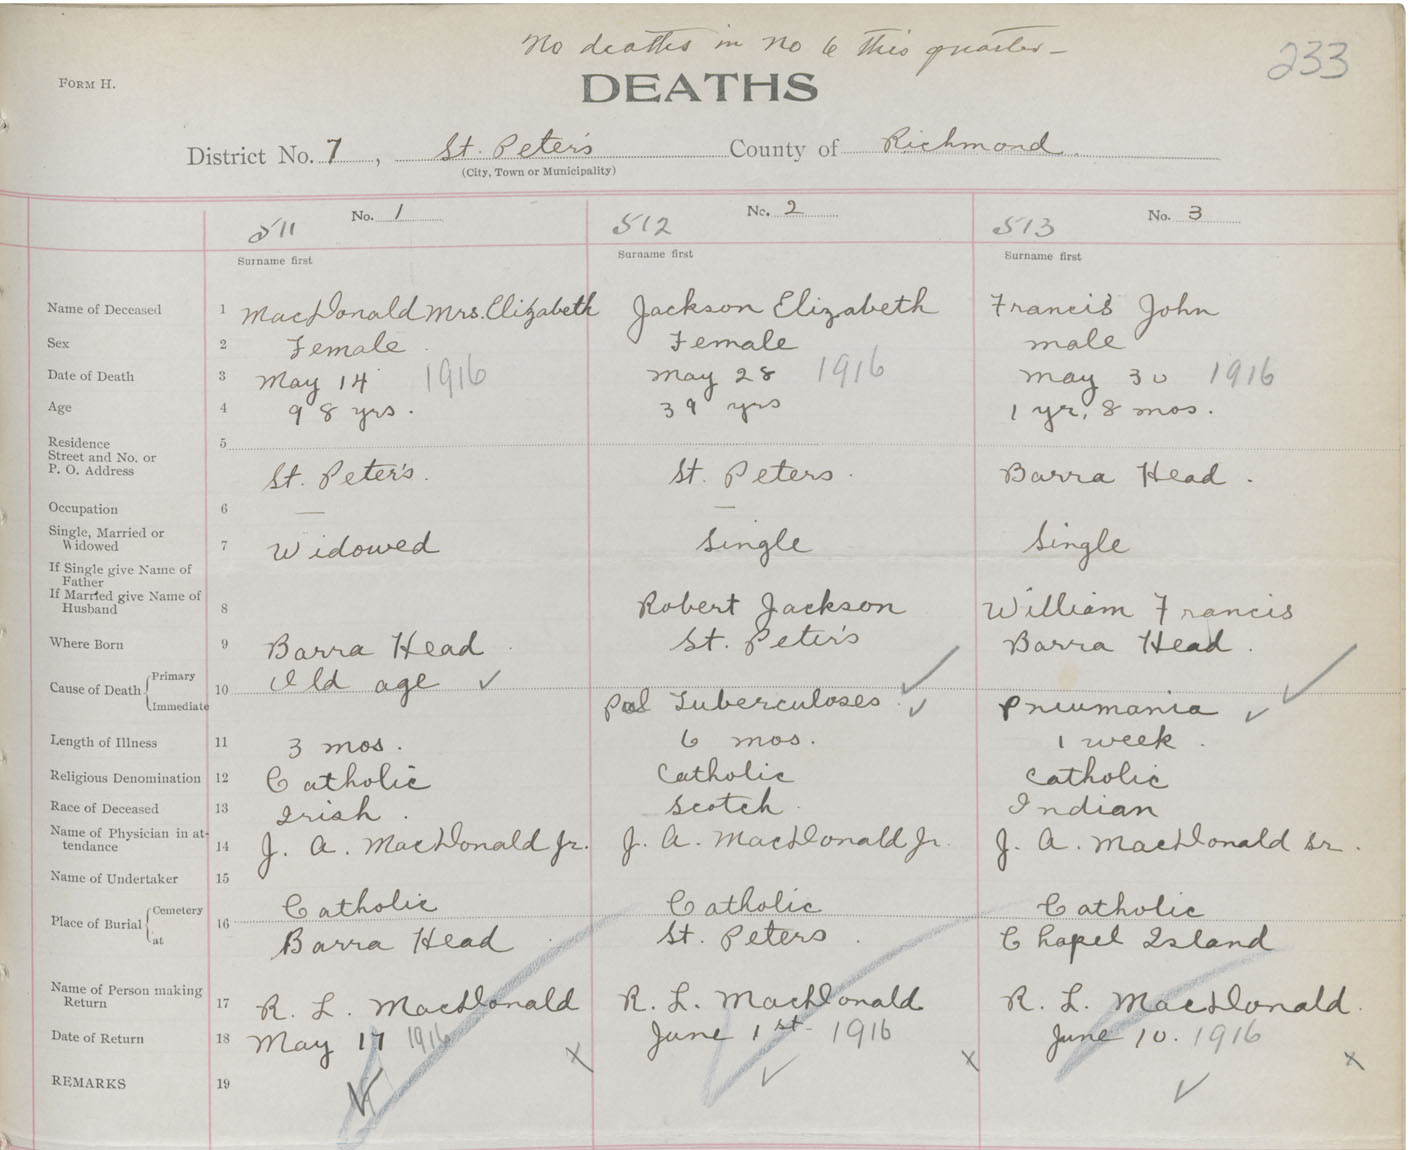 No deaths in No 6 this quarter -
233
FORM H.
DEATHS
District No. 7, St. Peter's County of Richmond
(City, Town or Municipality)
511 No. 1 512 No. 2 513 No. 3
Surname first Surname first Surname first
Name of Deceased 1 MacDonald Mrs. Elizabeth Jackson Elizabeth Francis John
Sex 2 Female Female male
Date of Death 3 May 14 1916 May 28 1916 May 30 1916
Age 4 98 yrs. 39 yrs 1 yr, 8 mos.
Residence 5
Street and No. or
P. O. Address St. Peter's. St. Peters. Barra Head.
Occupation 6 — —
Single, Married or
Widowed 7 Widowed Single Single
If Single give Name of
Father
If Married give Name of
Husband 8 Robert Jackson William Francis
Where Born 9 Barra Head St. Peter's Barra Head.
Cause of Death Primary 10 Old age ✓ ✓ ✓
Immediate Pul Tuberculoses ✓ Pneumania ✓
Length of Illness 11 3 mos. 6 mos. 1 week.
Religious Denomination 12 Catholic Catholic Catholic
Race of Deceased 13 Irish. Scotch. Indian
Name of Physician in at-
tendance 14 J. A. MacDonald Jr. J. A. MacDonald Jr. J. A. MacDonald Sr.
Name of Undertaker 15
Place of Burial Cemetery 16 Catholic Catholic Catholic
at Barra Head St. Peters. Chapel Island
Name of Person making
Return 17 R. L. MacDonald R. L. MacDonald R. L. MacDonald.
Date of Return 18 May 17 1916 June 1st 1916 June 10. 1916
x x x
REMARKS 19 ✓ ✓ ✓